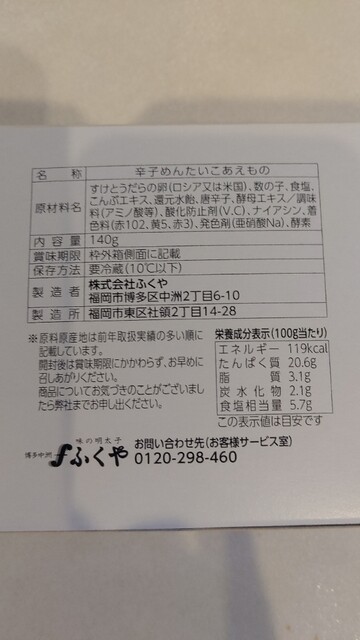 名称 辛子めんたいこあえもの
原材料名 すけとうだらの卵(ロシア又は米国)、数の子、食塩、
こんぶエキス、還元水飴、唐辛子、酵母エキス/調味
料(アミノ酸等)、酸化防止剤(V.C)、ナイアシン、着
色料(赤102、黄5、赤3)、発色剤(亜硝酸Na)、酵素
内容量 140g
賞味期限 枠外箱側面に記載
保存方法 要冷蔵(10℃以下)
製造者 株式会社ふくや
福岡市博多区中洲2丁目6-10
製造所 福岡市東区社領2丁目14-28
※原料原産地は前年取扱実績の多い順に
記載しています。
開封後は賞味期限にかかわらず、お早めに
召しあがりください。
商品についてお気づきのことがございまし
たら弊社までお申し出ください。
栄養成分表示(100g当たり)
エネルギー 119kcal
たんぱく質 20.6g
脂質 3.1g
炭水化物 2.1g
食塩相当量 5.7g
この表示値は目安です
味の明太子
博多中洲 ふくや
お問い合わせ先(お客様サービス室)
0120-298-460